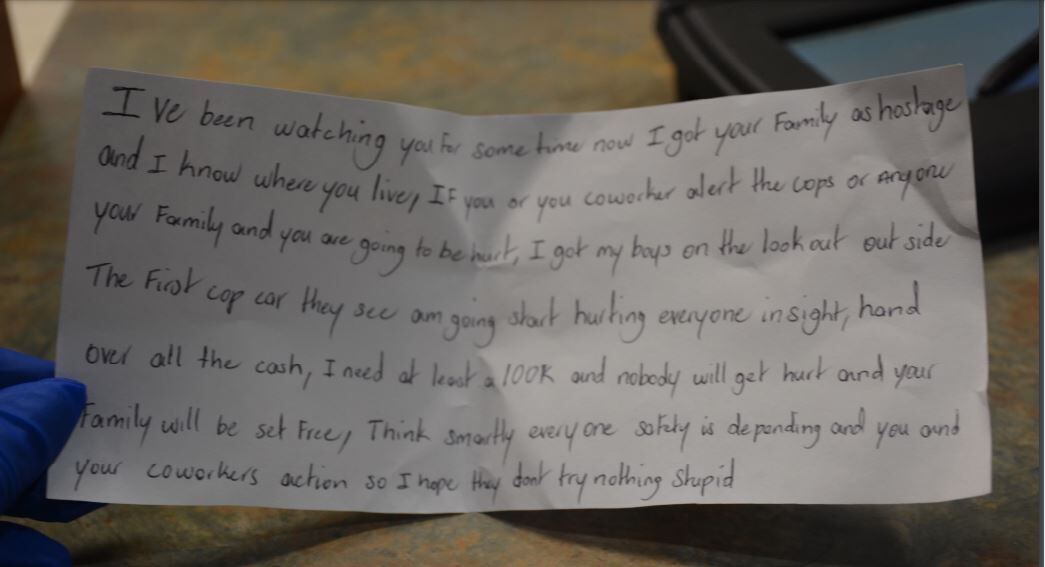 I've been watching you for some time now I got your Family as hostage
and I know where you live, IF you or you coworker alert the cops or Anyone
your Family and you are going to be hurt, I got my boys on the look out out side
The First cop car they see am going start hurting everyone in sight, hand
over all the cash, I need at least a 100K and nobody will get hurt and your
Family will be set Free, Think smartly every one safety is depending and you and
your coworkers action so I hope they dont try nothing stupid